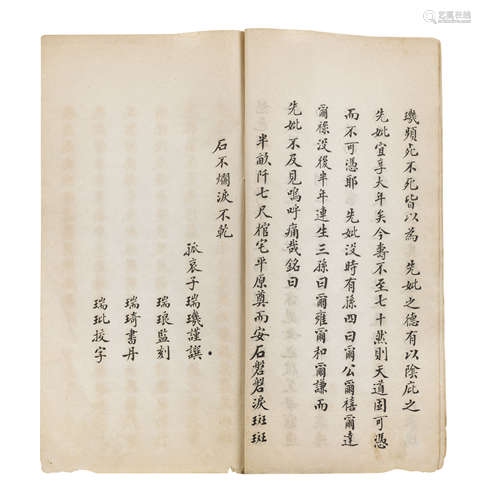 璣頻死不死皆以為 先妣之德有以陰庇之
先妣宜享大年矣今壽不至七十歲則天道固可憑
而不可憑耶 先妣没時有孫四曰爾公爾禧爾達
爾祿没後半年連生三孫曰爾雍爾和爾謙而
先妣不及見嗚呼痛哉銘曰
半畝阡七尺棺宅平原奠而安石磐磐淚斑斑
石不爛淚不乾
孤哀子瑞璣謹譔
瑞琅監刻
瑞琦書丹
瑞玭挍字